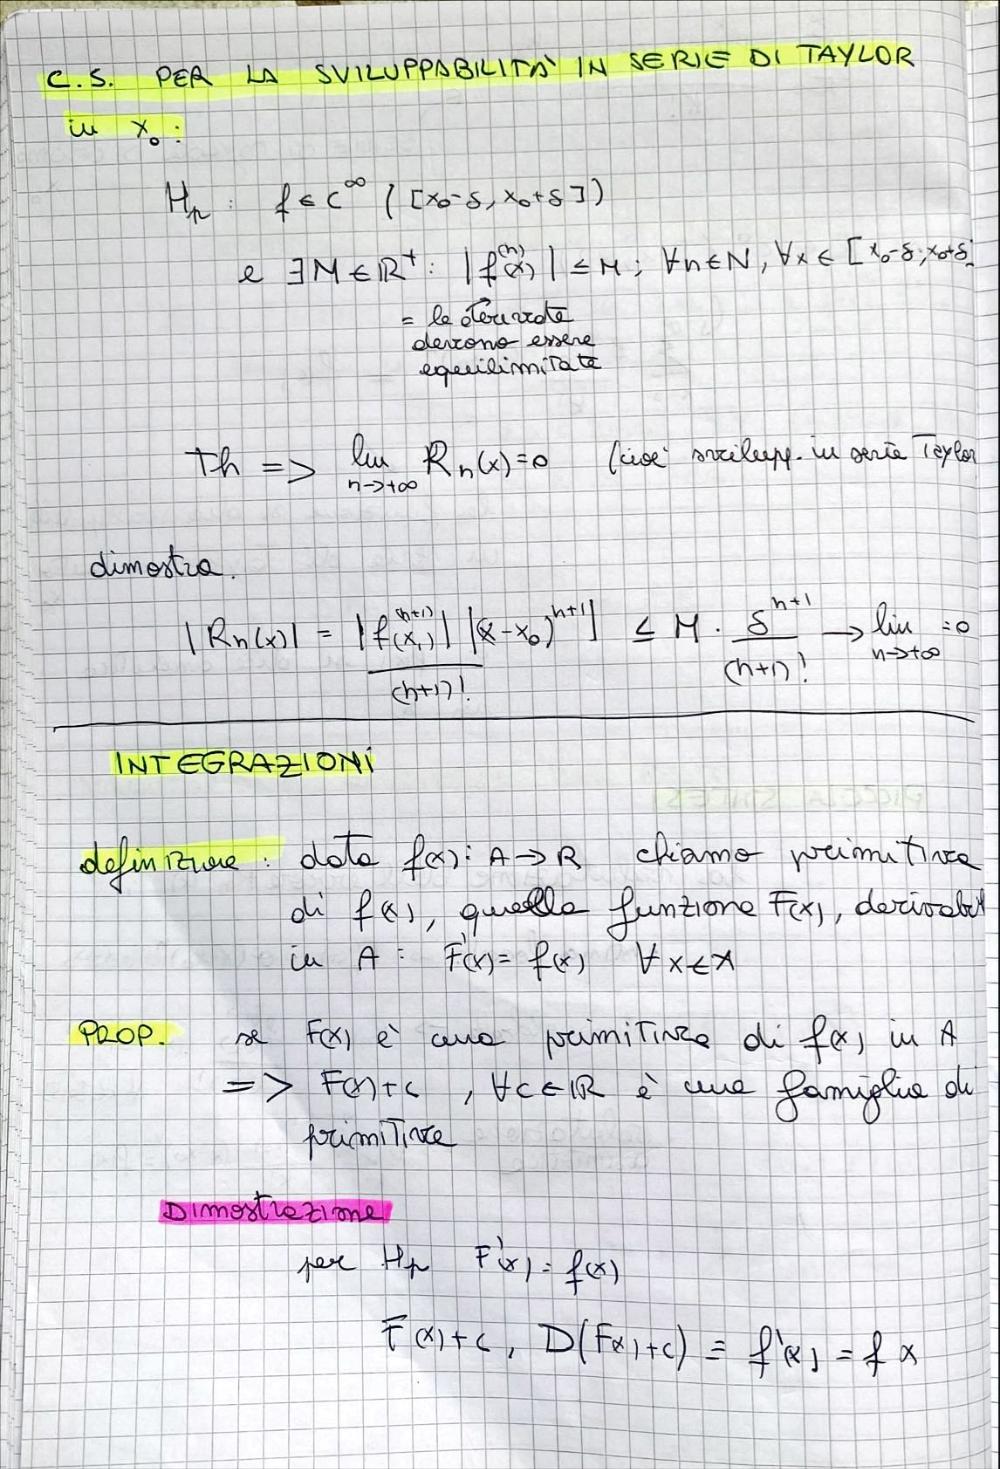 C.S. PER LA SVILUPPABILITÀ IN SERIE DI TAYLOR
in x₀ :
Hp : f ∈ C^∞ ( [x₀-δ, x₀+δ] )
e ∃ M ∈ ℝ⁺ : |f⁽ⁿ⁾(x)| ≤ M ; ∀n ∈ N, ∀x ∈ [x₀-δ, x₀+δ]
= le derivate
devono essere
equilimitate
Th => lim n→+∞ Rₙ(x) = 0 (cioè svilupp. in serie Taylor
dimostra.
|Rₙ(x)| = |f⁽ⁿ⁺¹⁾(x₁)| |(x-x₀)ⁿ⁺¹| / (n+1)! ≤ M · δⁿ⁺¹ / (n+1)! → lim n→+∞ = 0
INTEGRAZIONI
definizione : data f(x) : A → R chiamo primitiva
di f(x), quella funzione F(x), derivabil
in A : F'(x) = f(x) ∀ x ∈ A
PROP. se F(x) è una primitiva di f(x) in A
=> F(x)+c , ∀c ∈ ℝ è una famiglia di
primitive
Dimostrazione
per Hp F'(x) = f(x)
F(x)+c, D(F(x)+c) = f'(x) = f x